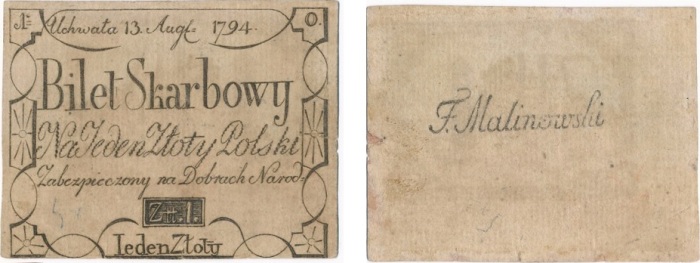 Uchwała 13. Augſ: 1794. O.
Bilet Skarbowy
Na Jeden Złoty Polski
Zabezpieczony na Dobrach Narod:
Jeden Złoty
F. Malinowski